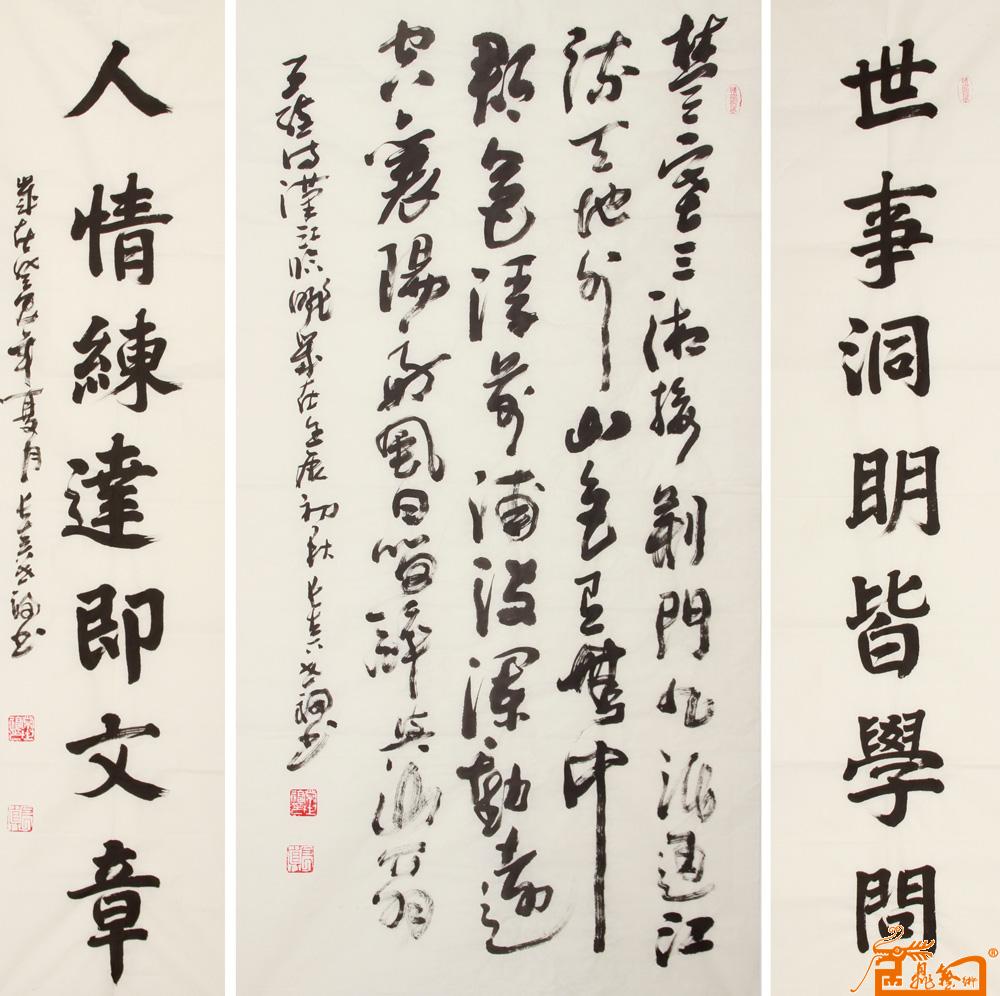 世事洞明皆學問
楚塞三湘接荊門九派通江
流天地外山色有無中
郡邑浮前浦波瀾動遠
空襄陽好風日留醉與山翁
王維詩漢江臨眺歲在壬辰初秋 书
人情練達即文章
歲在癸 年夏月 书